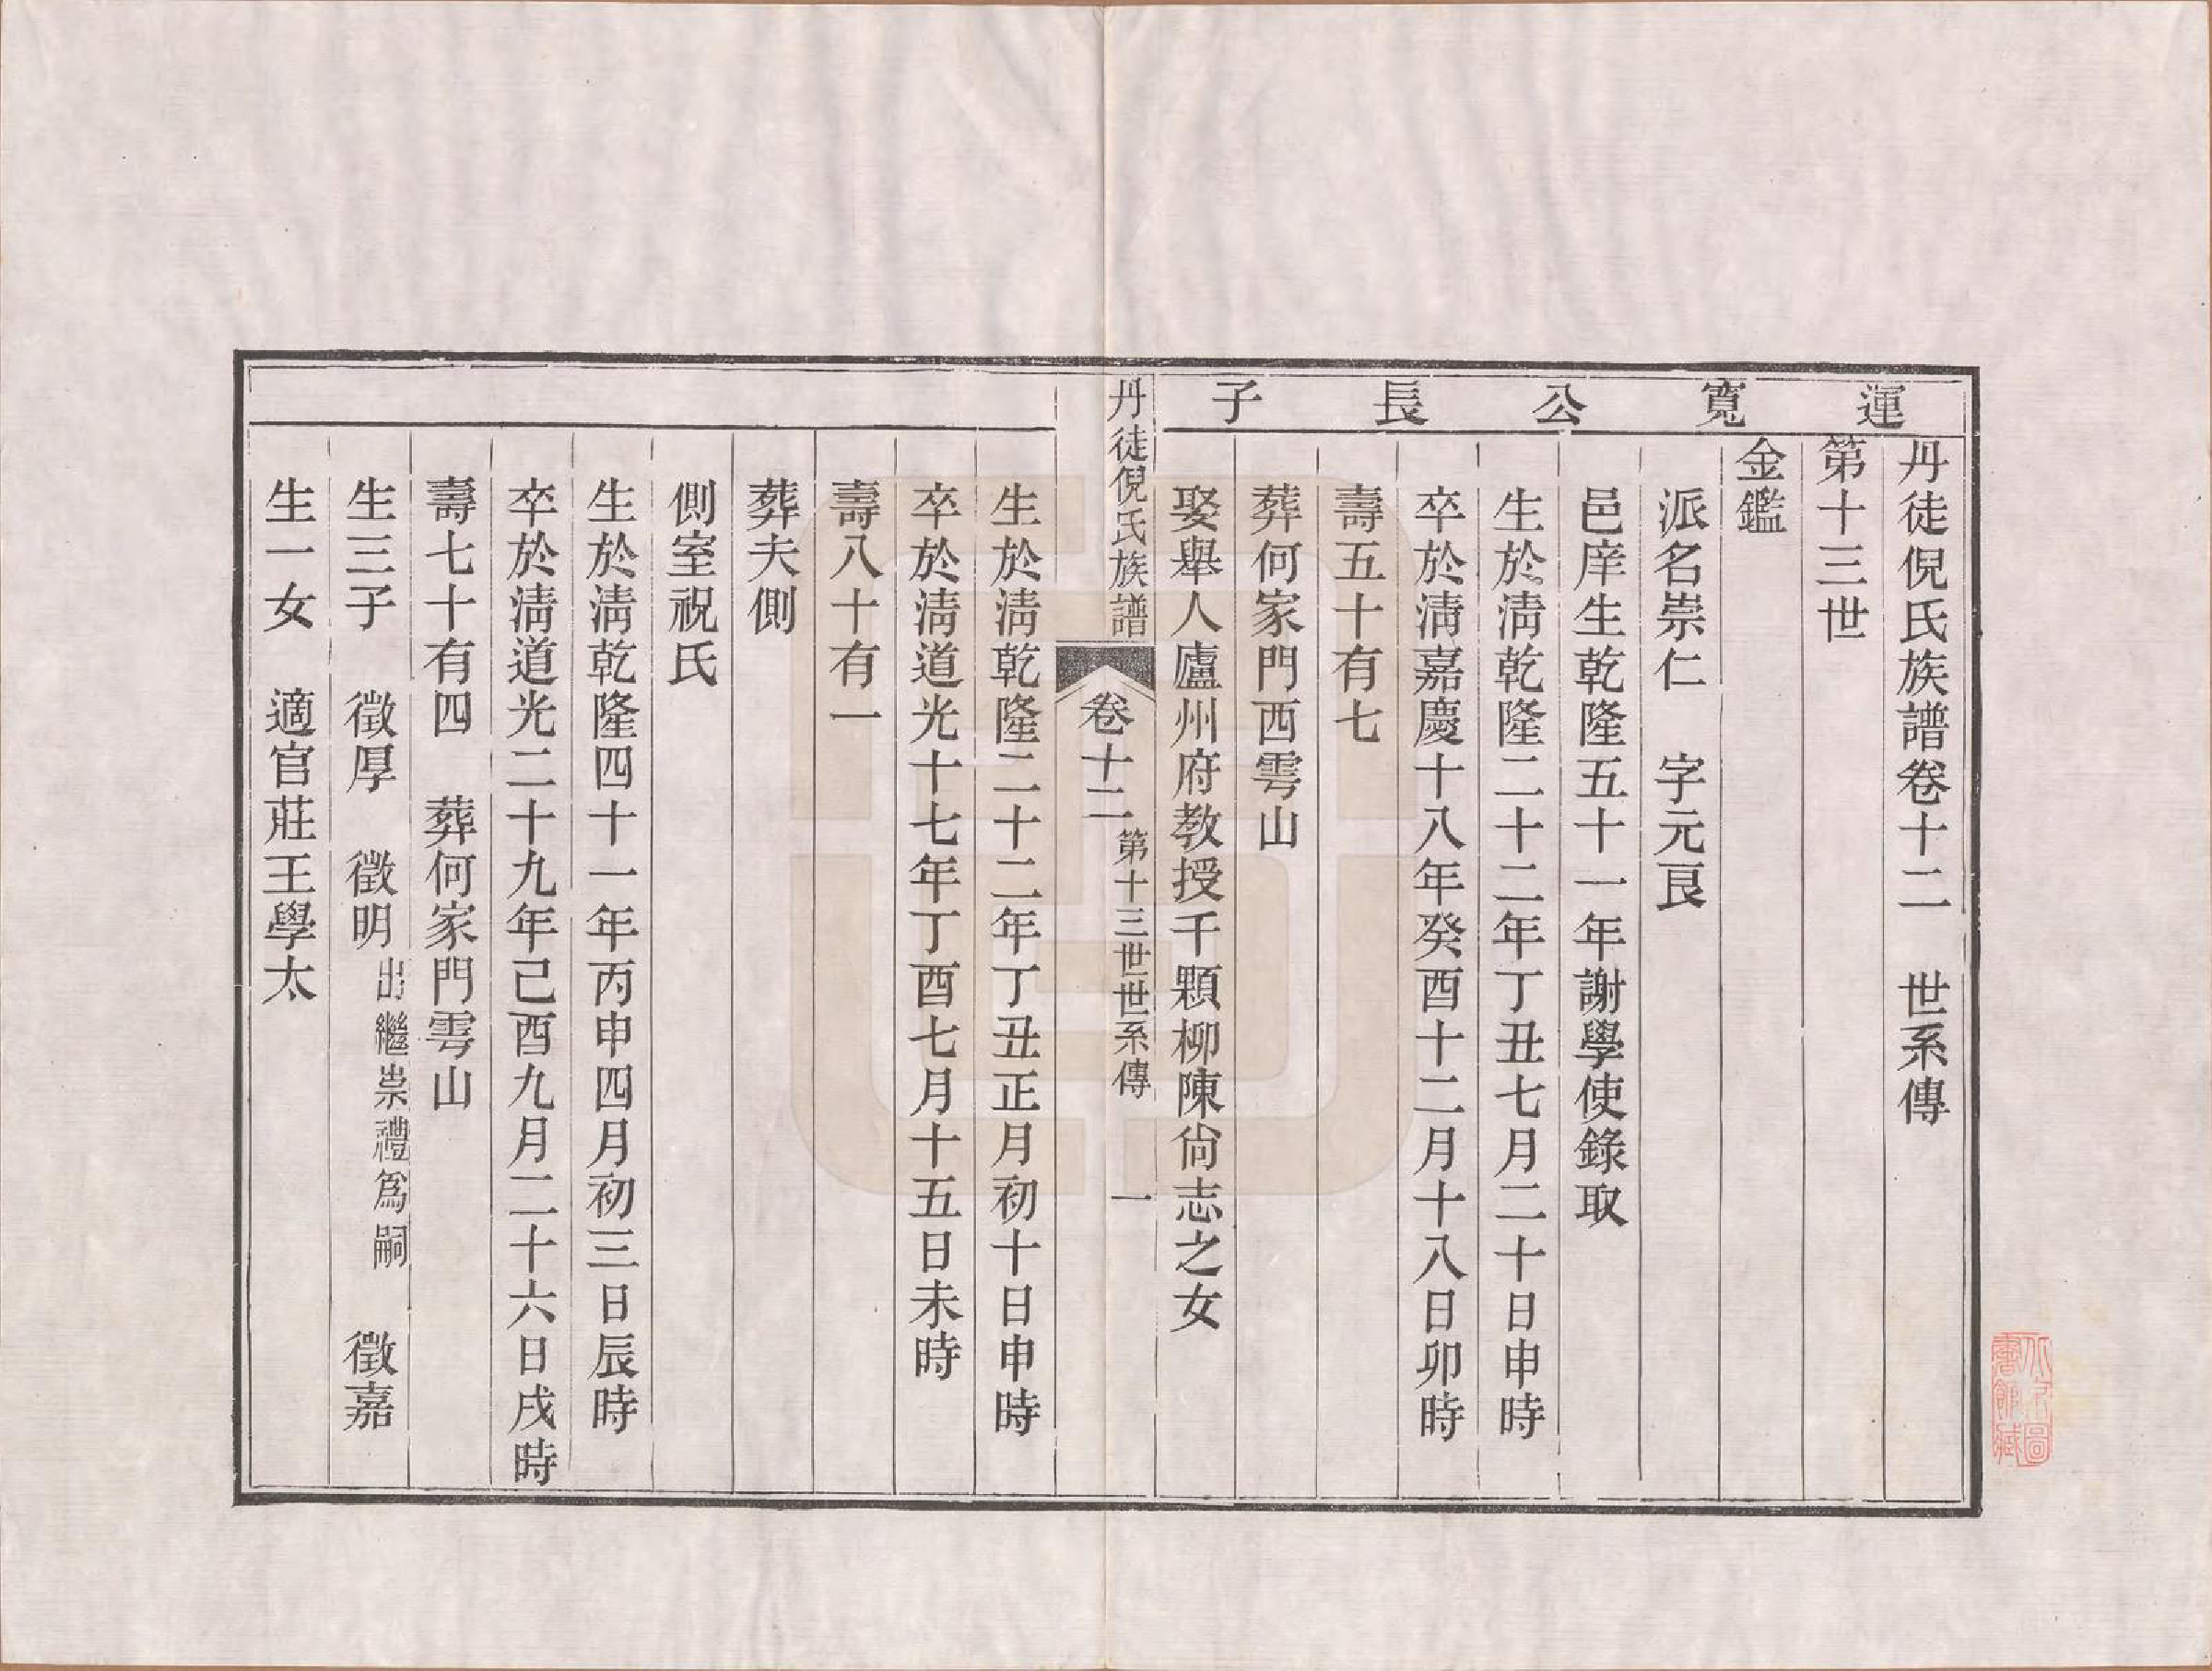 運寬公長子
丹徒倪氏族譜卷十二　世系傳
第十三世
金鑑
派名崇仁　字元艮
邑庠生乾隆五十一年謝學使錄取
生於淸乾隆二十二年丁丑七月二十日申時
卒於淸嘉慶十八年癸酉十二月十八日卯時
壽五十有七
葬何家門西雩山
娶舉人廬州府教授千顆柳陳尙志之女
丹徒倪氏族譜
卷十二
第十三世世系傳
一
生於淸乾隆二十二年丁丑正月初十日申時
卒於淸道光十七年丁酉七月十五日未時
壽八十有一
葬夫側
側室祝氏
生於淸乾隆四十一年丙申四月初三日辰時
卒於淸道光二十九年己酉九月二十六日戌時
壽七十有四　葬何家門雩山
生三子　徵厚　徵明出繼崇禮爲嗣　徵嘉
生一女　適官莊王學太